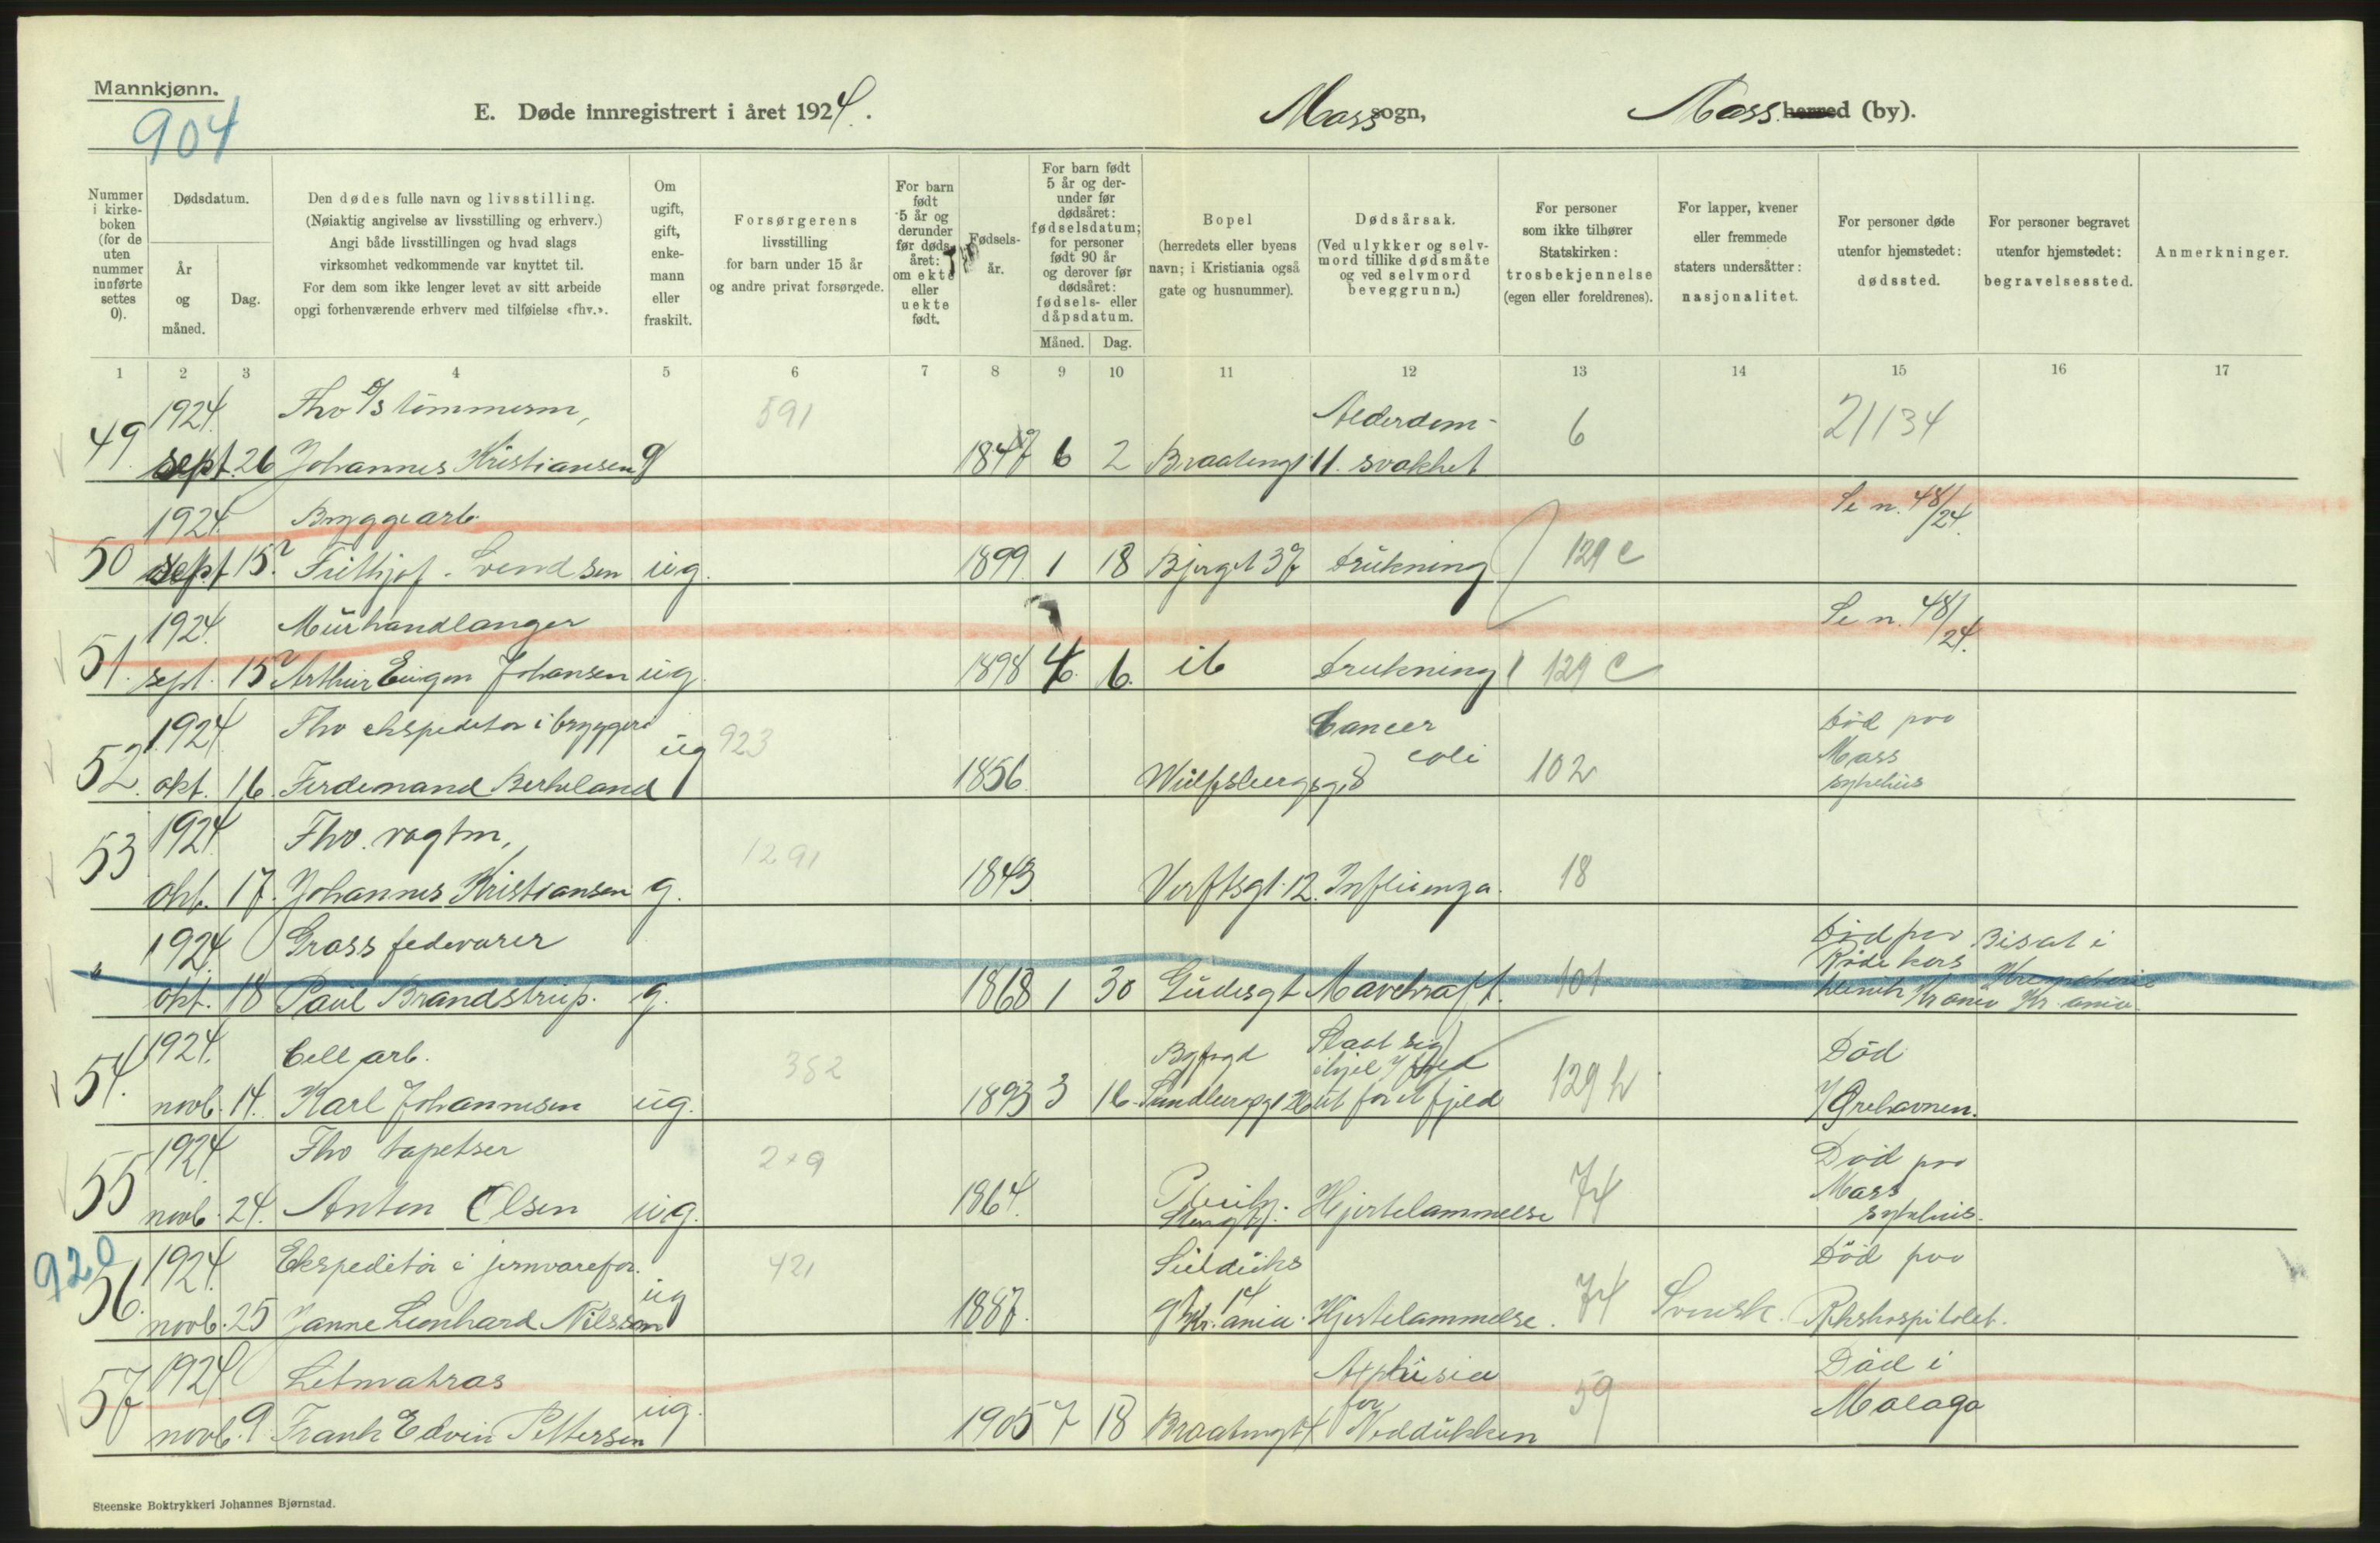 Mannkjønn.
904
E. Døde innregistrert i året 1924.
Moss sogn,
Moss herred (by).
Nummer i kirkeboken (for de uten nummer innførte settes 0).
Dødsdatum.
År og måned.
Dag.
Den dødes fulle navn og livsstilling.
(Nøiaktig angivelse av livsstilling og erhverv.)
Angi både livsstillingen og hvad slags
virksomhet vedkommende var knyttet til.
For dem som ikke lenger levet av sitt arbeide
opgi forhenværende erhverv med tilføielse «fhv.».
Om ugift, gift, enkemann eller fraskilt.
Forsørgerens
livsstilling
for barn under 15 år
og andre privat forsørgede.
For barn født 5 år og derunder før dødsåret: om ekte eller uekte født.
Fødselsår.
For barn født 5 år og derunder før dødsåret: fødselsdatum; for personer født 90 år og derover før dødsåret: fødsels- eller dåpsdatum.
Måned.
Dag.
Bopel
(herredets eller byens
navn; i Kristiania også
gate og husnummer).
Dødsårsak.
(Ved ulykker og selvmord tillike dødsmåte og ved selvmord beveggrunn.)
For personer
som ikke tilhører
Statskirken:
trosbekjennelse
(egen eller foreldrenes).
For lapper, kvener
eller fremmede
staters undersåtter:
nasjonalitet.
For personer døde
utenfor hjemstedet:
dødssted.
For personer begravet
utenfor hjemstedet:
begravelsessted.
Anmerkninger.
1 2 3 4 5 6 7 8 9 10 11 12 13 14 15 16 17
1924. Fhv tømmerm, 591 Alderdom- 6 21134
49. sept. 26 Johannes Kristiansen g 6 2 11. svakhet
1924. Bryggearb. Se n. 48/24.
50 sept 15? Frithjof Svendsen ug. 1899 1 18 Bjerget 37 Drukning 129 c
1924. Murhandlanger Se n. 48/24.
51. sept. 15? Arthur Eugen Johansen ug. 1898 4. 6. ib Drukning 129 c
1924 Fhv ekspeditør i bryggeri ug 923 Cancer coli Død paa
52. okt. 16. Ferdinand 1856. 8 102 Moss sykehus
1924 Fhv. vagtm, 1291
53 okt. 17. Johannes Kristiansen g. 1843. Verftsgt. 12. Influenza. 18
1924. Gross fedevarer Død paa Røde kors Bisat i
" okt. 18 Paul Brandstrup. g. 1868 1 30 Gudesgt Mavekræft. 101 klinik Kr ania Krematoriet Kr. ania.
1924. Cell arb. 382 Slaat sig Død
54. novb. 14. Karl Johannesen ug. 1893 3 16. ut for et fjeld 129 h
1924 Fhv tapetser 2+9 Død paa
55 novb. 24. Anton Olsen ug. 1864. Hjertelammelse 74 Moss sykehus.
920
1924. Ekspeditør i jernvarefor. ug 421 Død paa
56. novb. 25 Janne Leonhard Nilsson 1887. Kr. ania. Hjertelammelse. 74 Svensk. Rikshospitalet.
1924 Letmatros Død i
57 novb. 9. Frank Edvin Pettersen ug. 1905 7 18 Braatengt 4 59 Malaga
Steenske Boktrykkeri Johannes Bjørnstad.